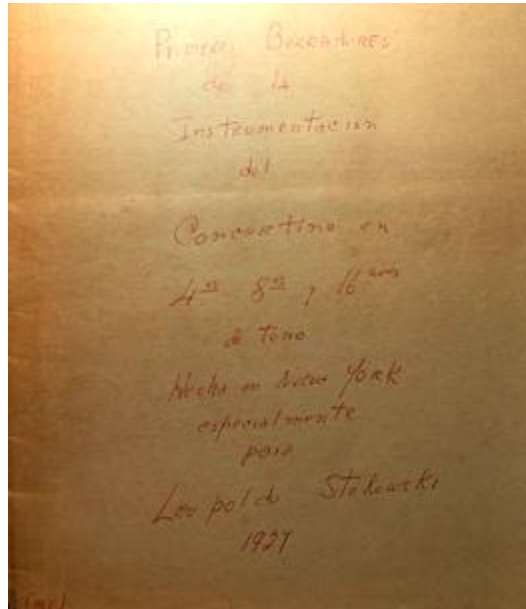 Primeros Borradores
de la
Instrumentación
del
Concertino en
4os 8os y 16avos
de Tono
Hecha en New York
especialmente
para
Leopoldo Stokowski
1927